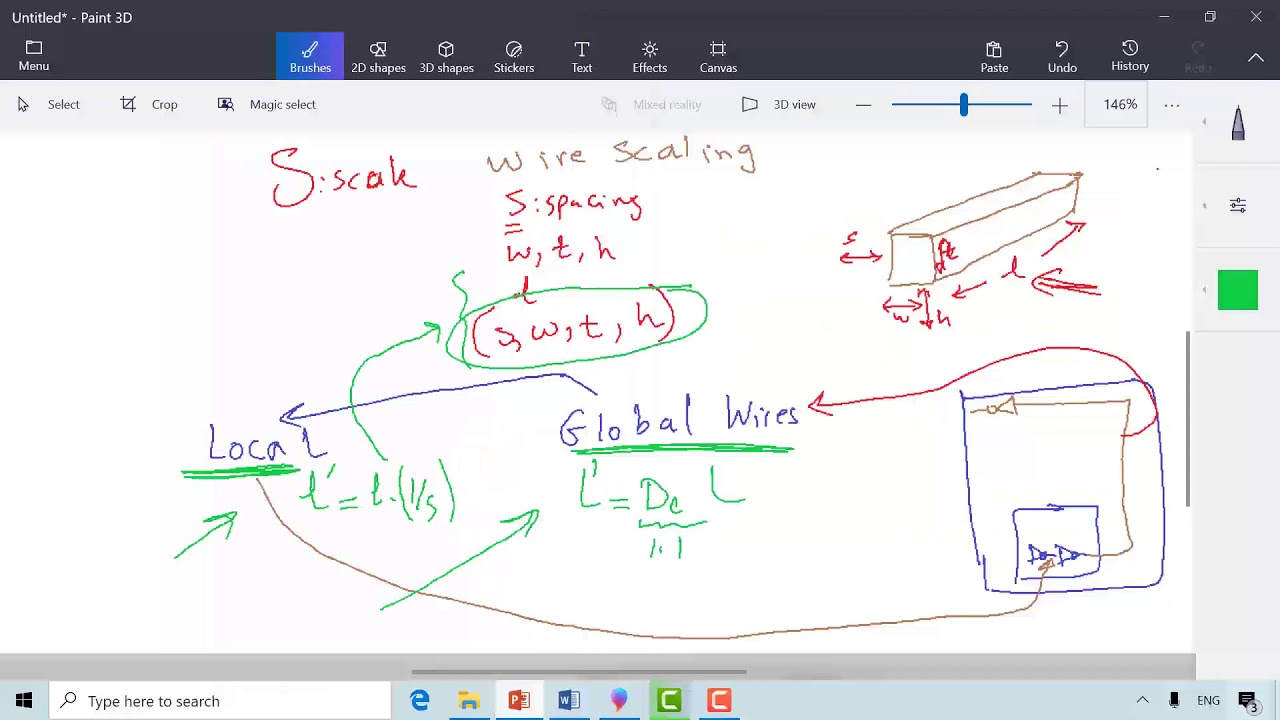 Untitled* - Paint 3D
Menu
Brushes
2D shapes
3D shapes
Stickers
Text
Effects
Canvas
Paste
Undo
History
Redo
Select
Crop
Magic select
Mixed reality
3D view
146%
S:scale
wire scaling
S:spacing
w, t, h
l
(s, w, t, h)
S
s
t
l
w
h
Local
Global Wires
l' = l.(1/s)
L' = Dc L
1.1
Type here to search
ENG
3